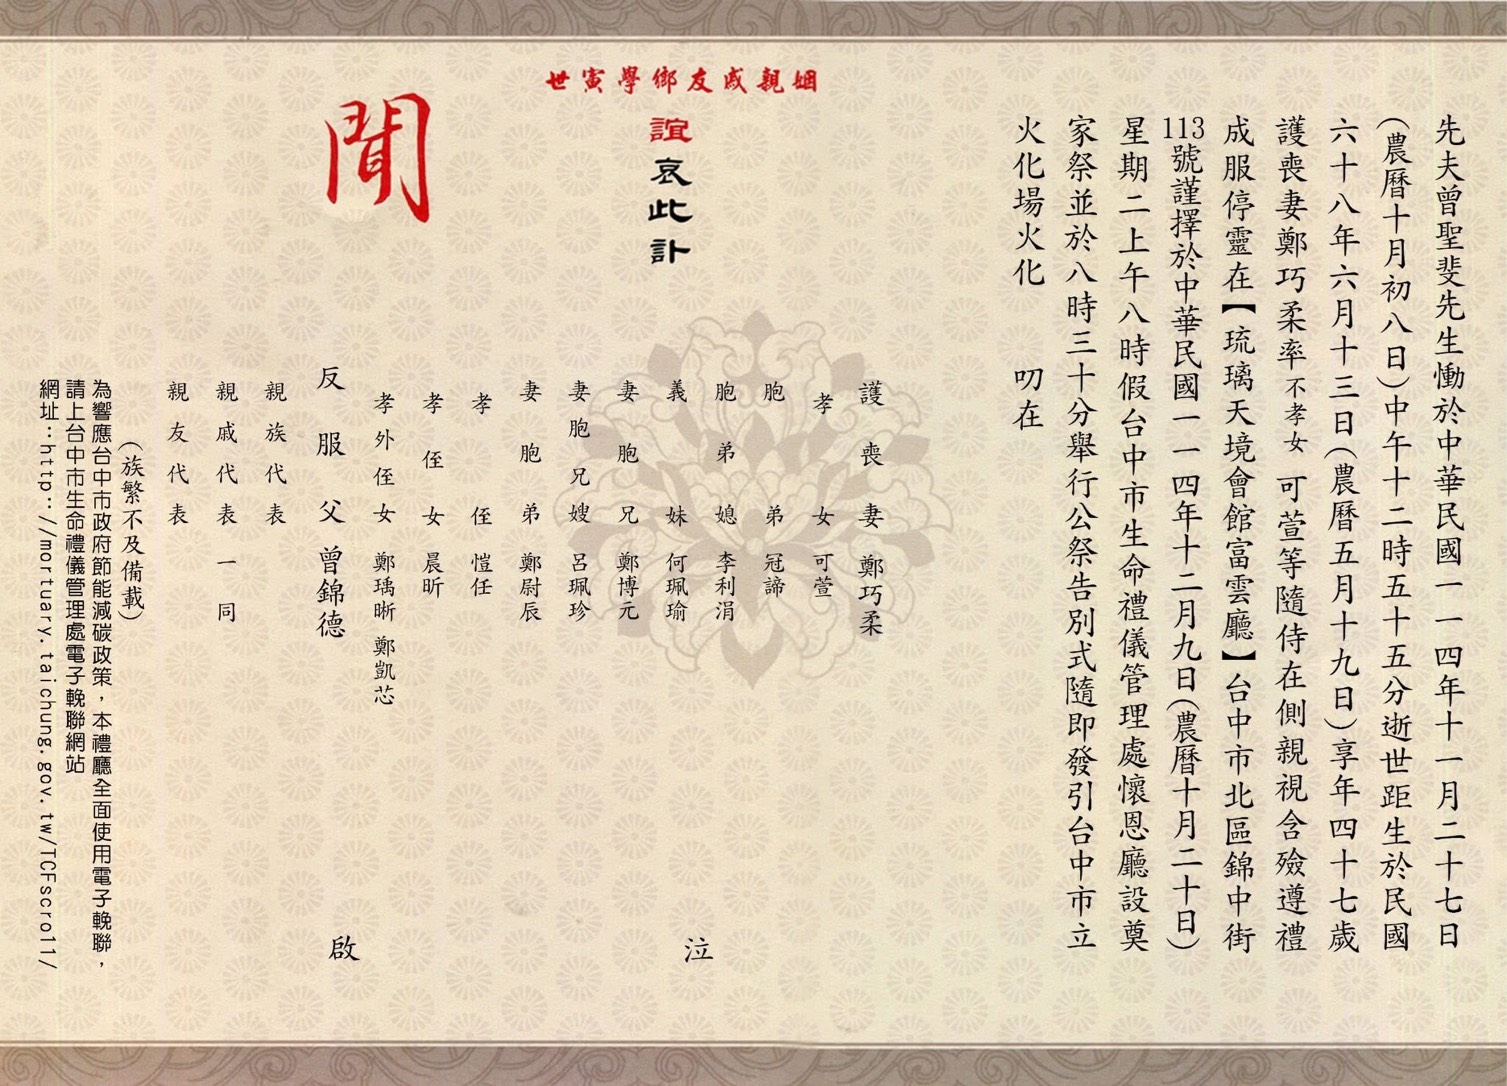 先夫曾聖斐先生慟於中華民國一一四年十一月二十七日
(農曆十月初八日)中午十二時五十五分逝世距生於民國
六十八年六月十三日(農曆五月十九日)享年四十七歲
護喪妻鄭巧柔率不孝女 可萱等隨侍在側親視含殮遵禮
成服停靈在【琉璃天境會館富雲廳】台中市北區錦中街
113號謹擇於中華民國一一四年十二月九日(農曆十月二十日)
星期二上午八時假台中市生命禮儀管理處懷恩廳設奠
家祭並於八時三十分舉行公祭告別式隨即發引台中市立
火化場火化 叨在
姻親戚友鄉學寅世
誼哀此訃
聞
護喪妻 鄭巧柔
孝女 可萱
胞弟 冠諦
胞弟媳 李利涓
義妹 何珮瑜
妻胞兄 鄭博元
妻胞兄嫂 呂珮珍
妻胞弟 鄭尉辰
孝侄 愷任
孝侄女 晨昕
孝外侄女 鄭瑀晰 鄭凱芯
泣
反服父 曾錦德 啟
親族代表
親戚代表 一同
親友代表
(族繁不及備載)
為響應台中市政府節能減碳政策，本禮廳全面使用電子輓聯，
請上台中市生命禮儀管理處電子輓聯網站
網址：http://mortuary.taichung.gov.tw/TCFscroll/